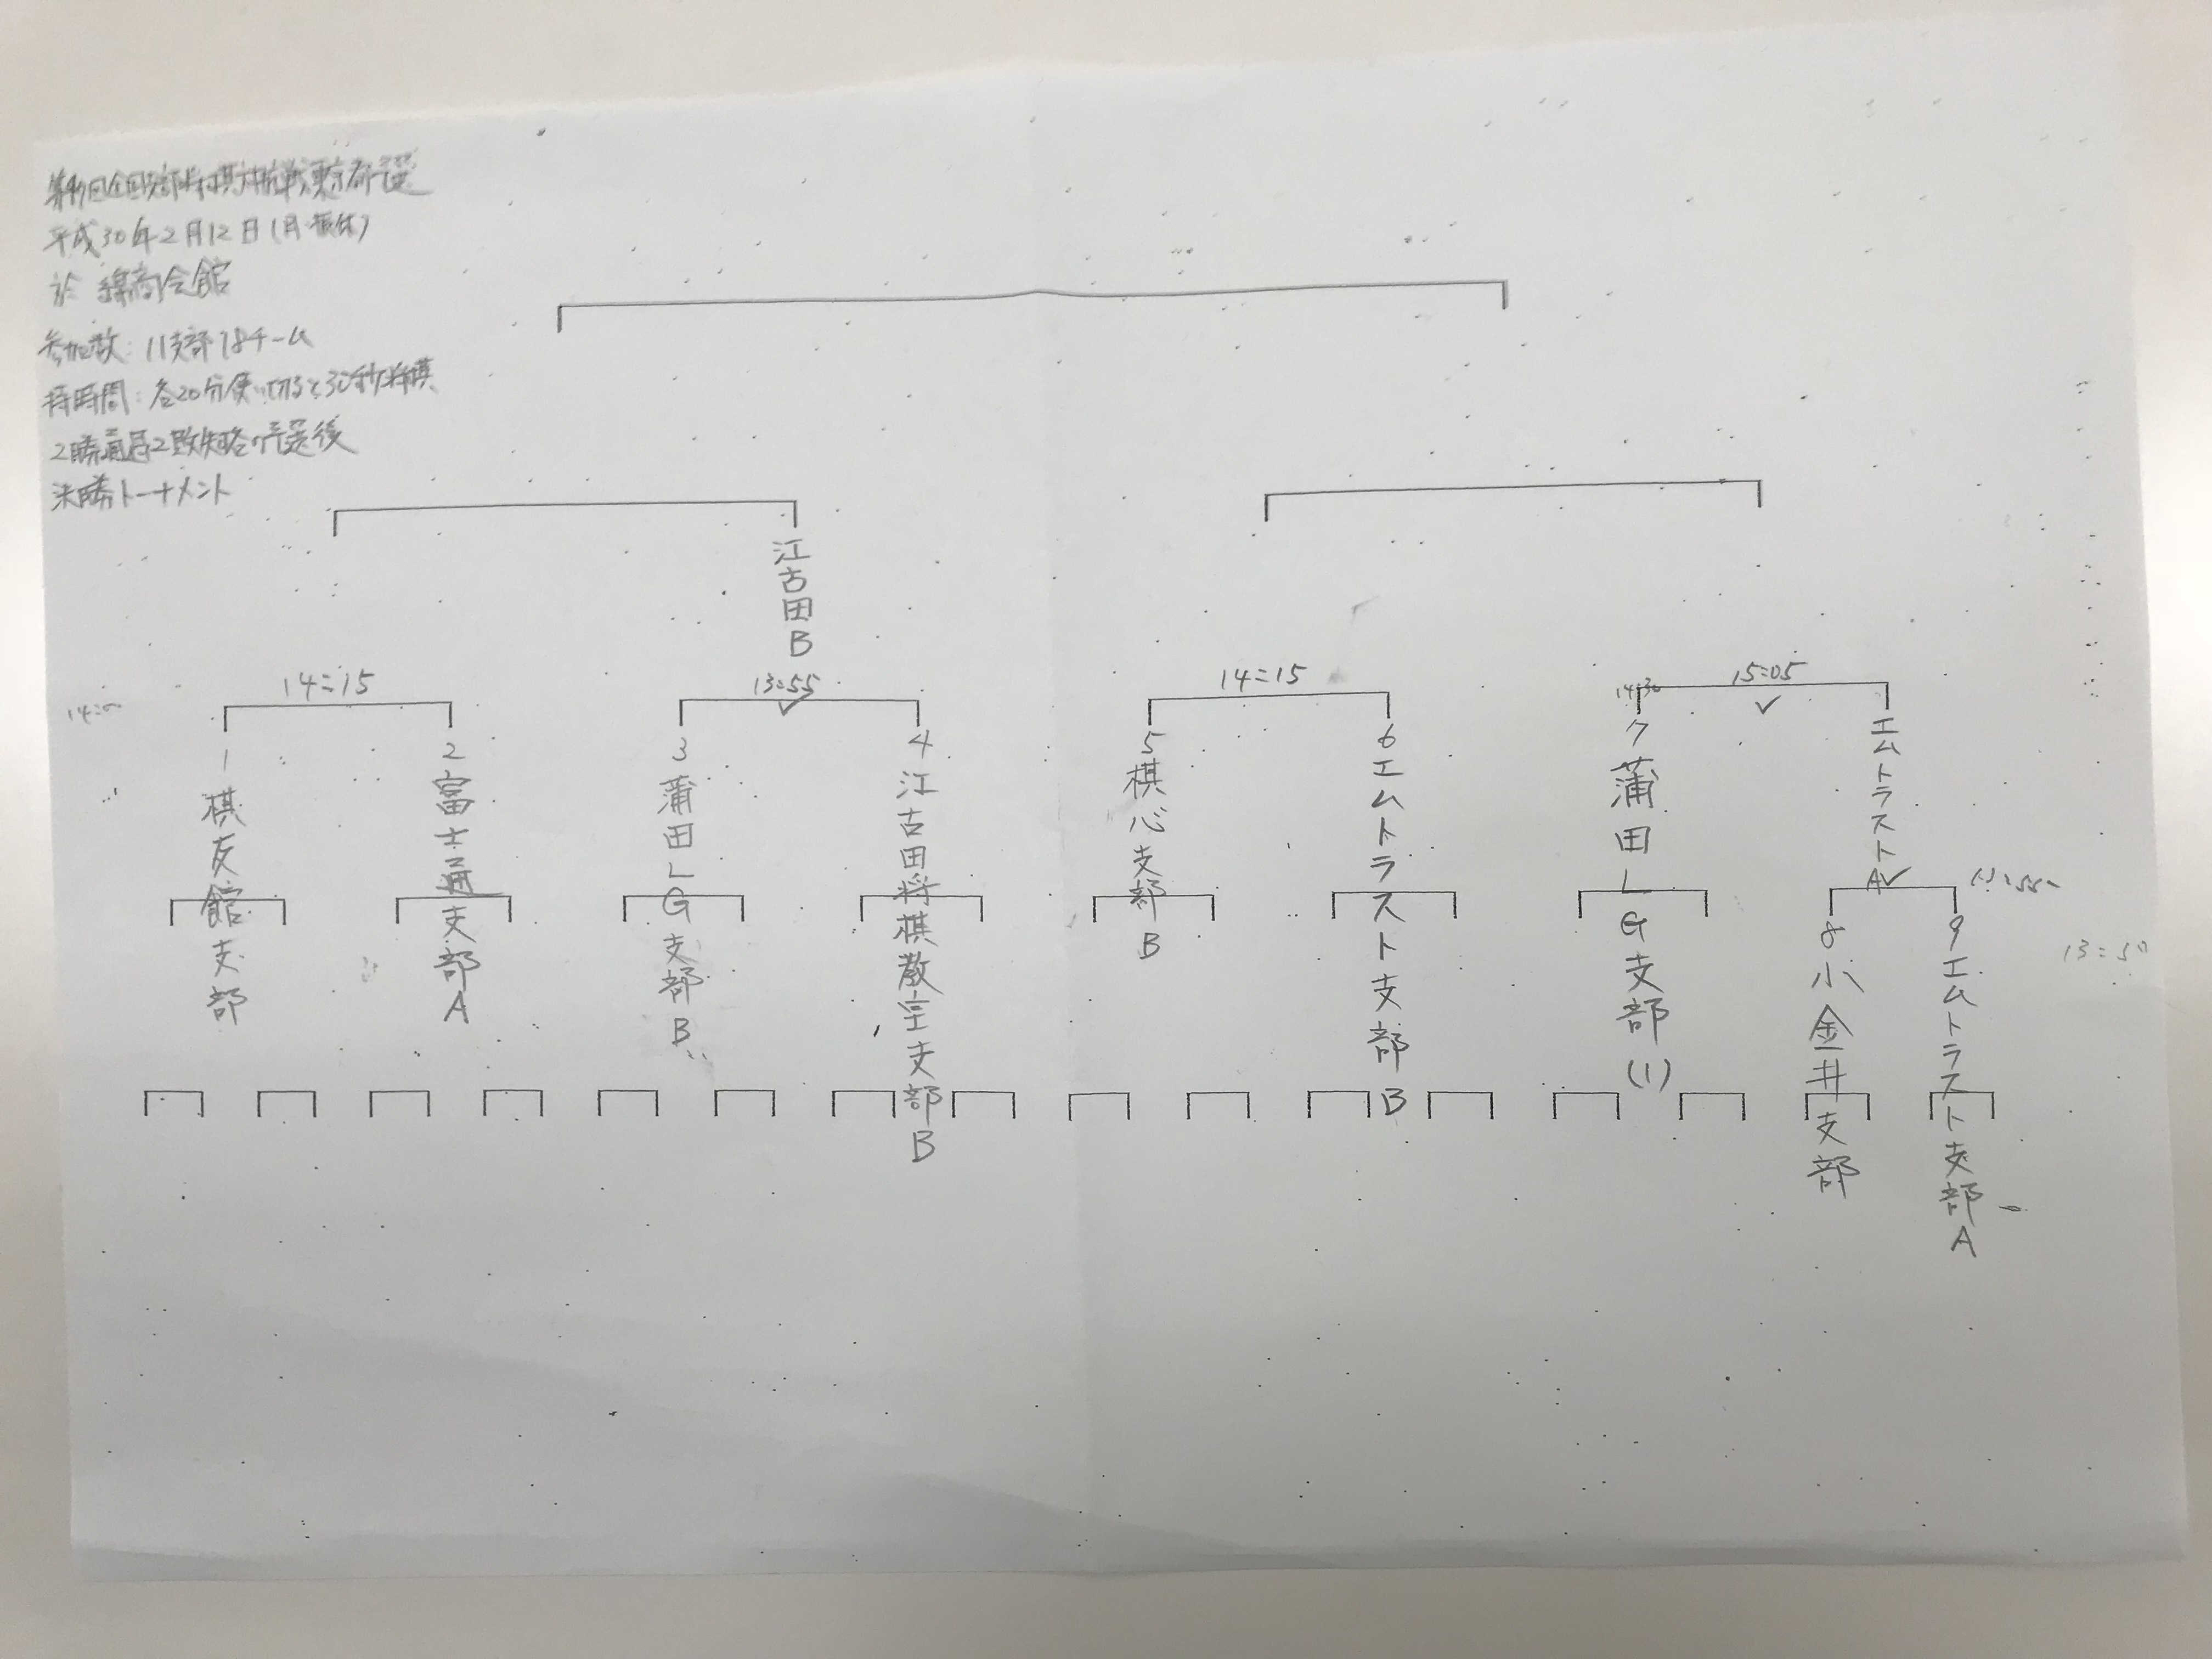 平成30年2月12日(月・振休)
於 綿商会館
参加数:11支部18チーム
持時間:各20分使い切ると30秒将棋
2勝通過2敗失格の予選後
決勝トーナメント
江古田B
14=15
13=55
14=15
15=05
1棋友館支部
2富士通支部A
3蒲田LG支部B
4江古田将棋教室支部B
5棋心支部B
6エムトラスト支部B
7蒲田LG支部(1)
エムトラストA
8小金井支部
9エムトラスト支部A
13=50